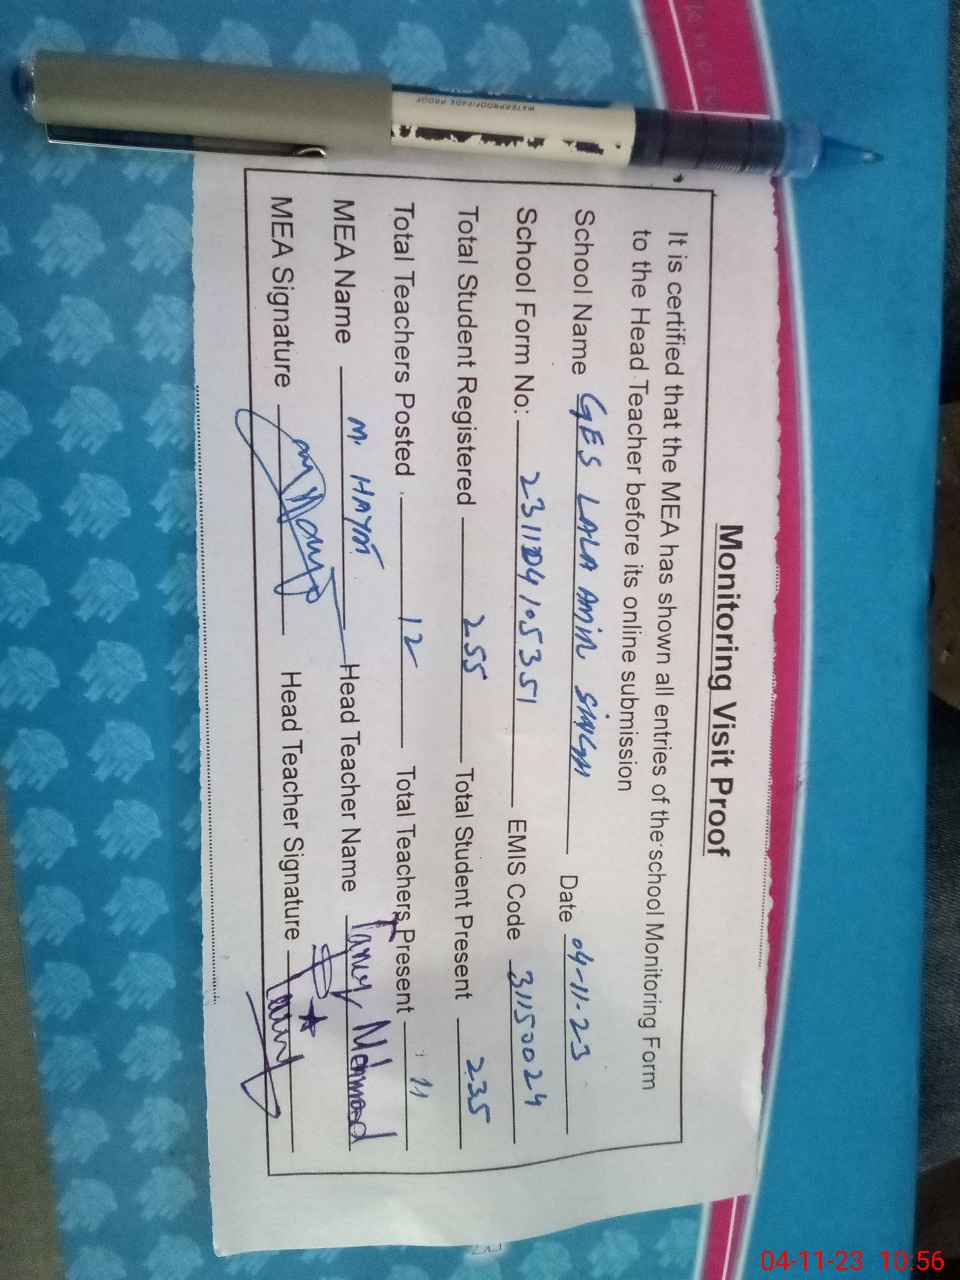 WATERPROOF/FADE PROOF
Monitoring Visit Proof
It is certified that the MEA has shown all entries of the school Monitoring Form
to the Head Teacher before its online submission
School Name GES LALA AMIR SINGH Date 04-11-23
School Form No: EMIS Code 31150024
Total Student Registered 255 Total Student Present 235
Total Teachers Posted 12 Total Teachers Present 11
MEA Name M. HAYAT Head Teacher Name Mehmood
MEA Signature Head Teacher Signature
04-11-23 10:56